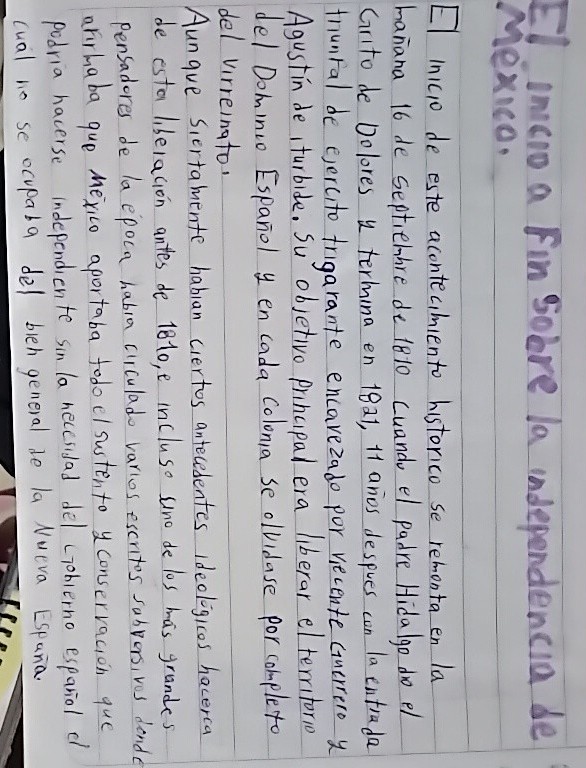 El inicio a Fin Sobre la independencia de
México.
El inicio de este acontecimiento historico se remonta en la
mañana 16 de Septiembre de 1810 cuando el padre Hidalgo dio el
Grito de Dolores y termina en 1821, 11 años despues con la entrada
triunfal de ejercito trigarante encavezado por vicente Guerrero y
Agustín de iturbide. Su objetivo principal era liberar el territorio
del Dominio Español y en cada colonia se olvidase por completo
del virreinato.
Aunque siertamente habian ciertos antecedentes ideológicos hacerca
de esta liberación antes de 1810, e incluso uno de los más grandes
pensadores de la época habia circulado varios escritos subversivos donde
afirmaba que México aportaba todo el sustento y conservación que
podria hacerse independiente sin la necesidad del Gobierno español el
cuál no se ocupaba del bien general de la Nueva España.